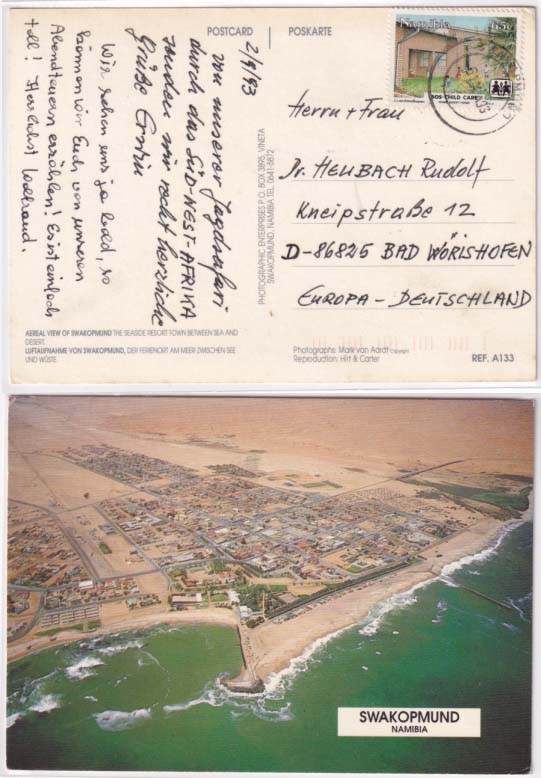 POSTCARD
POSKARTE
Namibia
SOS CHILD CARE
2/9/93
von unserer Jagdsafari
durch das SÜD-WEST-AFRIKA
senden wir recht herzliche
Grüße Erwin
Wir sehen uns ja bald, so
können wir Euch von unseren
Abendteuern erzählen! Es ist einfach
toll! Herzlichst Waltraud.
PHOTOGRAPHIC ENTERPRISES P.O. BOX 3895, VINETA
SWAKOPMUND, NAMIBIA TEL. 0641-5872
Herrn + Frau
Dr. HEUBACH Rudolf
Kneipstraße 12
D-86825 BAD WÖRISHOFEN
EUROPA - DEUTSCHLAND
AEREAL VIEW OF SWAKOPMUND THE SEASIDE RESORT TOWN BETWEEN SEA AND
DESERT.
LUFTAUFNAHME VON SWAKOPMUND, DER FERIENORT AM MEER ZWISCHEN SEE
UND WÜSTE.
Photographs: Mark van Aardt Copyright
Reproduction: Hirt & Carter
REF. A133
SWAKOPMUND
NAMIBIA